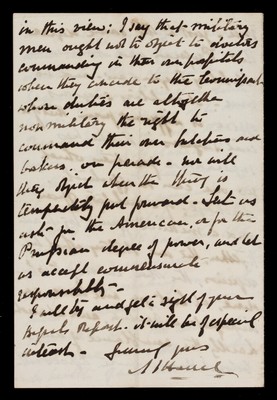 in this view; I say that military
men ought not to object to doctors
commanding in their own hospitals
when they concede to the Commissariat
whose duties are altogether
non military the right to
command their own butchers and
bakers, on parade - nor will
they object when the thing is
temperately put forward - Let us
ask for the American, or for the
Prussian degree of power, and let
us accept commensurate
responsibility -
I will try and get a sight of your
Report - it will be of especial
interest -
yours